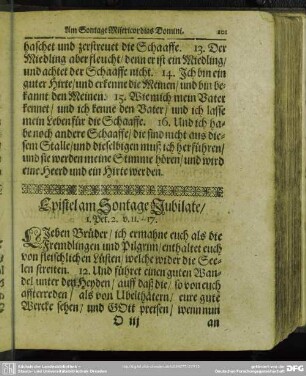 Am Sontage Misericordias Domini. 101
haschet und zerstreuet die Schaaffe. 13. Der
Miedling aber fleucht/ denn er ist ein Miedling/
und achtet der Schaaffe nicht. 14. Ich bin ein
guter Hirte/ und erkenne die Meinen/ und bin be-
kannt den Meinen. 15. Wie mich mein Vater
kennet/ und ich kenne den Vater/ und ich lasse
mein Leben für die Schaaffe. 16. Und ich ha-
be noch andere Schaaffe/ die sind nicht aus die-
sem Stalle/ und dieselbigen muß ich her führen/
und sie werden meine Stimme hören/ und wird
eine Heerd und ein Hirte werden.
Epistel am Sontage Jubilate/
1. Pet. 2. v. 11.-17.
LIeben Brüder/ ich ermahne euch als die
Frembdlingen und Pilgrim/ enthaltet euch
von fleischlichen Lüsten/ welche wider die See-
len streiten. 12. Und führet einen guten Wan-
del unter den Heyden/ auff daß die/ so von euch
affterreden/ als von Ubelthätern/ eure gute
Wercke sehen/ und GOtt preisen/ wenn nun
an